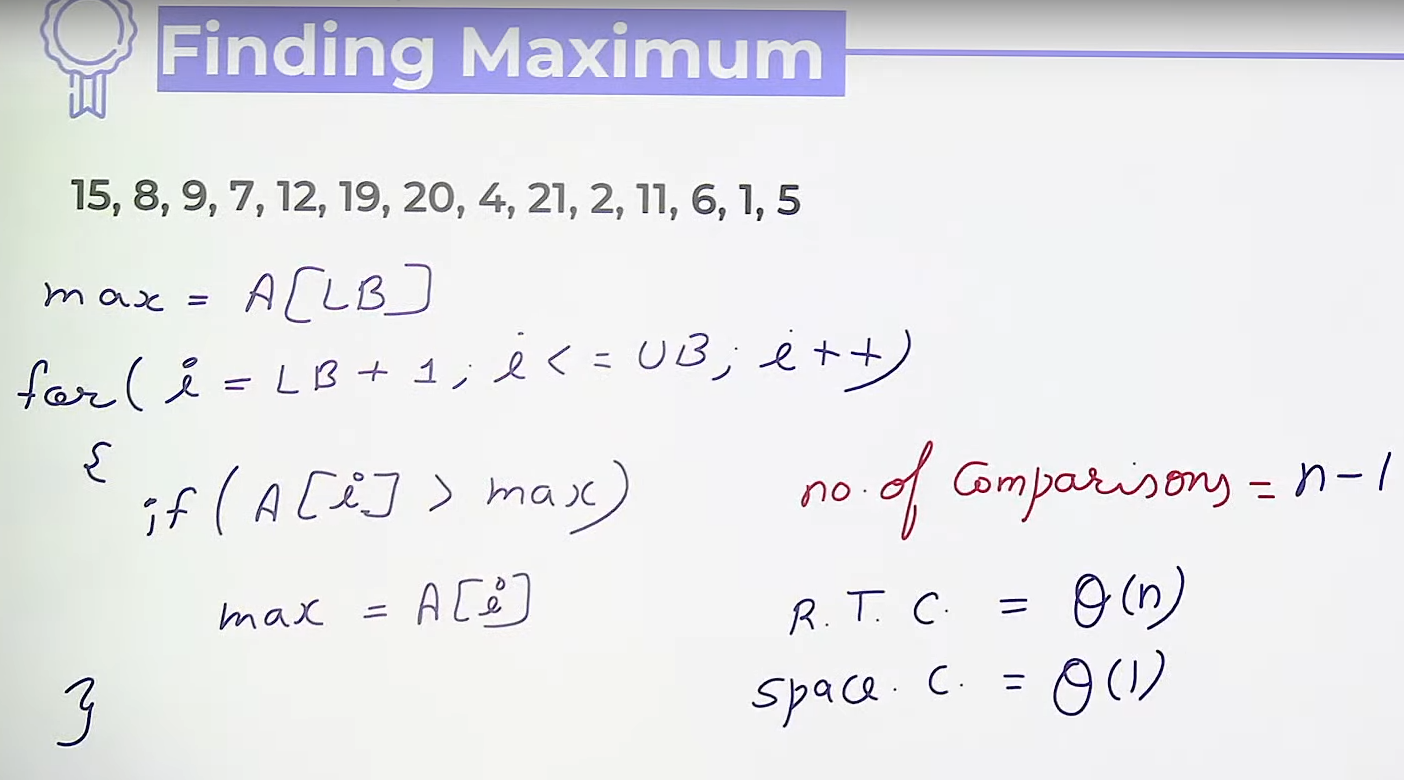 Finding Maximum
15, 8, 9, 7, 12, 19, 20, 4, 21, 2, 11, 6, 1, 5
max = A[LB]
for( i = LB + 1; i < = UB; i++)
{
if( A[i] > max)
no. of Comparisons = n-1
max = A[i]
R. T. C. = θ(n)
}
space. C. = θ(1)